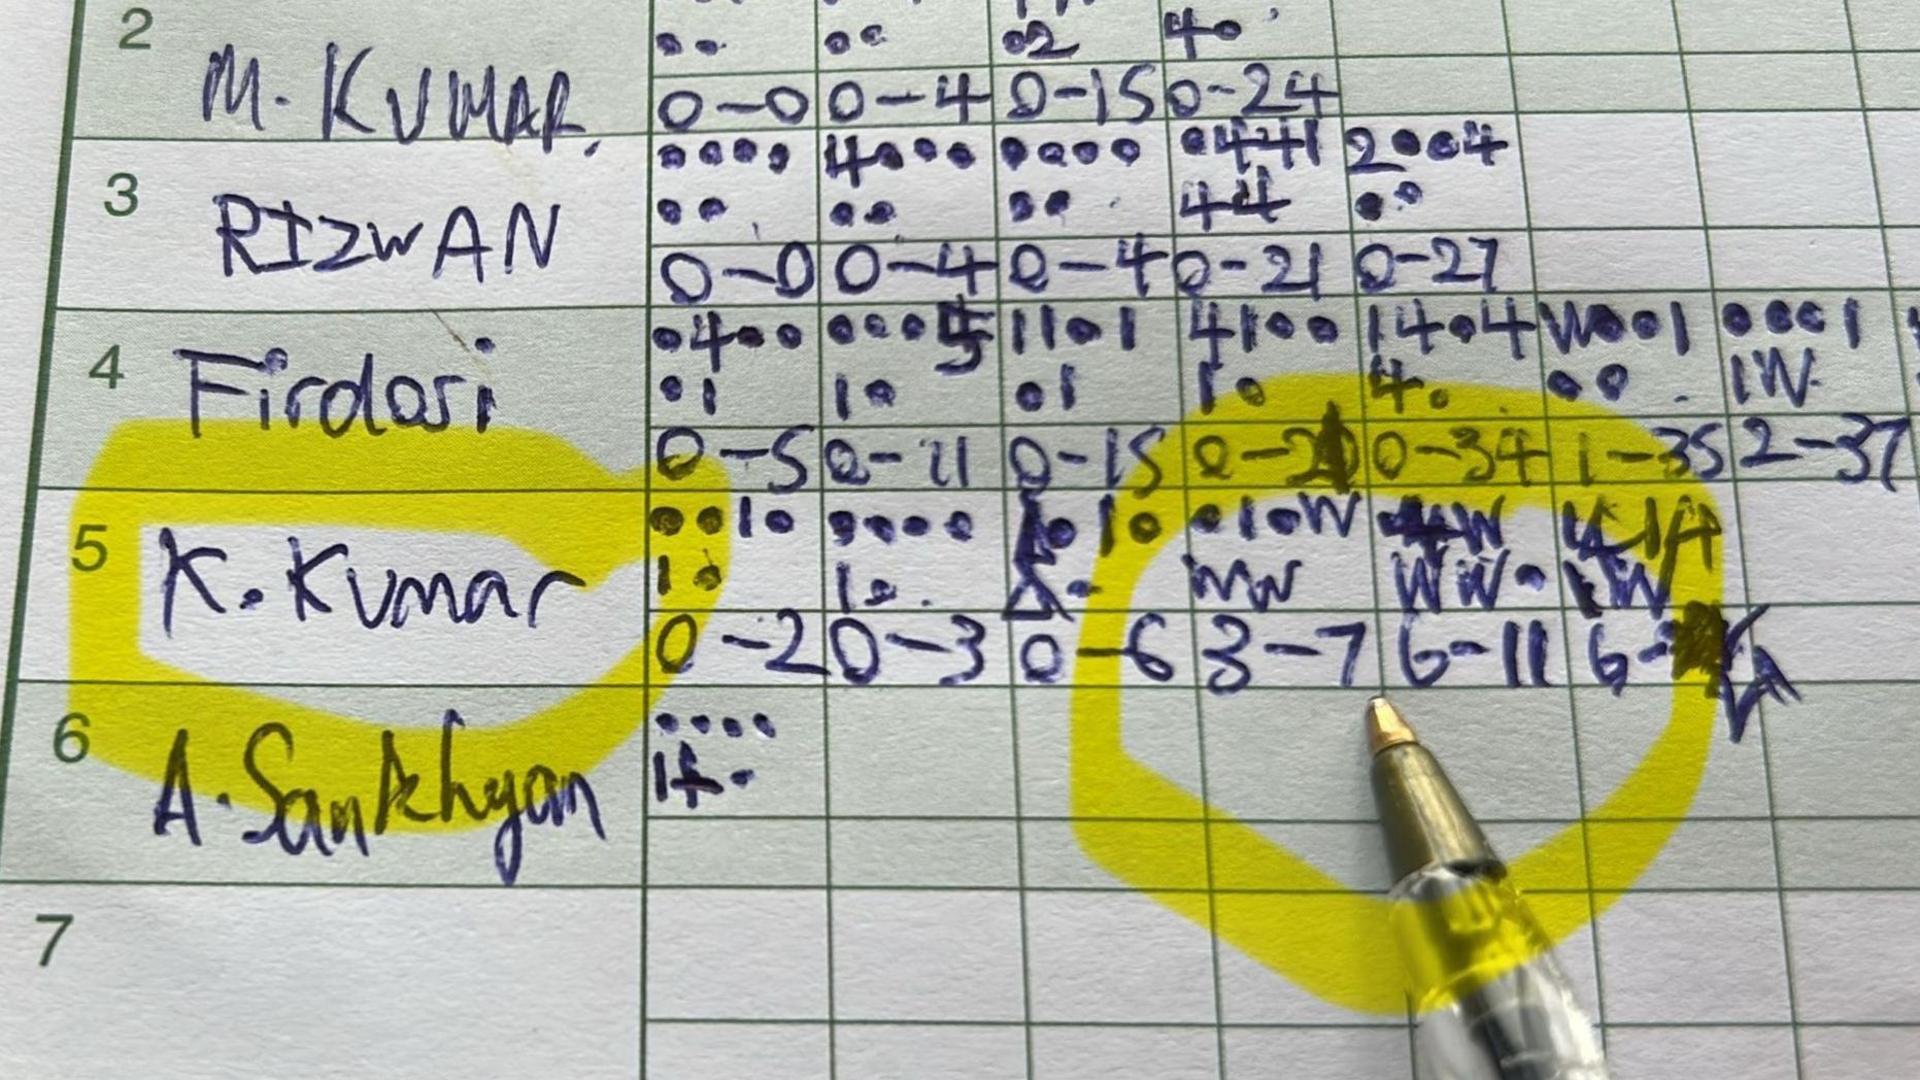 2
M. KUMAR.
•• •• •2 4•
0-0 0-4 0-15 0-24
3
RIZWAN
•••• 4••• •••• •441 2••4
•• •• •• 44 ••
0-0 0-4 0-4 0-21 0-27
4
Firdosi
•4•• •••5 11•1 41•• 14•4 W••1 •••1
•1 1• •1 1• 4• •• 1W
0-5 0-11 0-15 0-34 1-35 2-37
5
K. Kumar
••1• •••• •1• •1•W
1• 1• WW WW•
0-2 0-3 0-6 3-7 6-11 6-
6
A. Sankhyan
••••
1 •
7